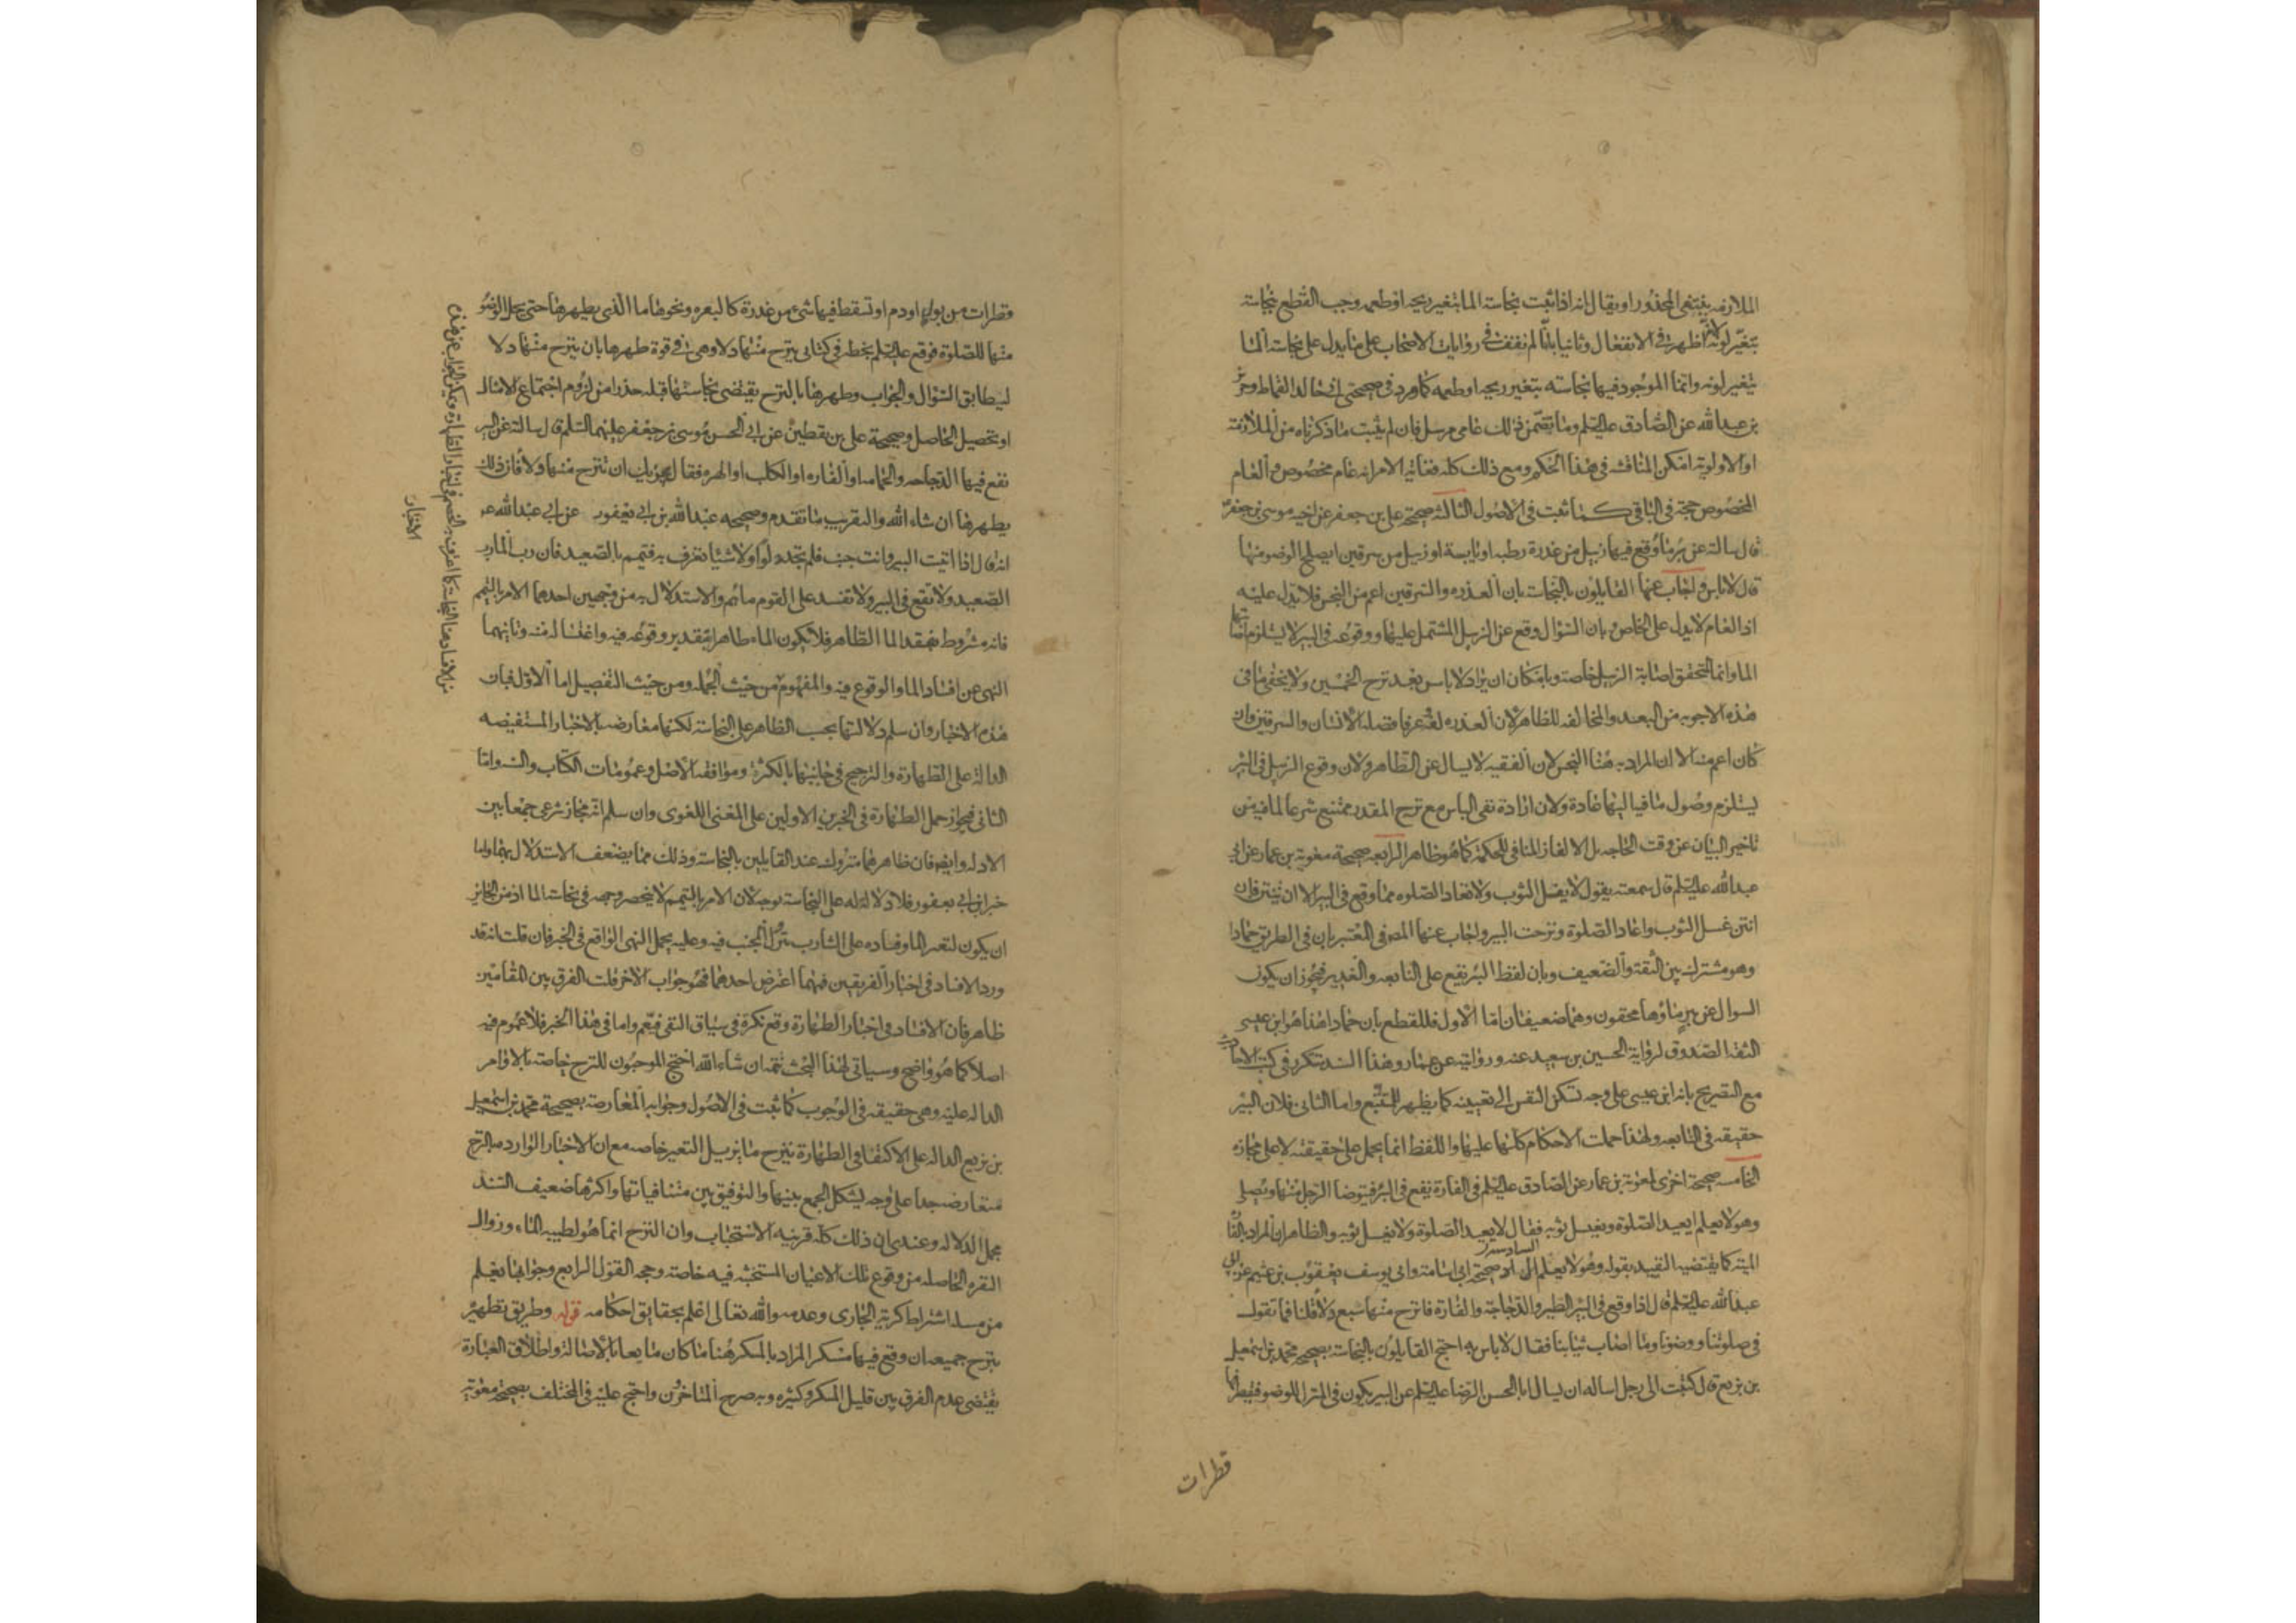 الملازمة ينتفى المحذور او يقال انه اذا ثبت نجاسته الما بتغير ريحه او طعمه وجب القطع بنجاسته
بتغير لونه لانه اظهر فى الانفعال وثانيا بانا لم نقف فى روايات الاصحاب على ما يدل على نجاسة الما
بتغير لونه وانما الموجود فيها نجاسته بتغير ريحه او طعمه كما ورد فى صحيحتى ابى خالد القماط وحريز
بن عبد الله عن الصادق عليه السلم وما تضمن ذلك عامى مرسل فان لم يثبت ما ذكرناه من الملازمة
او الاولوية امكن المناقشه فى هذا الحكم ومع ذلك كله فغاية الامر انه عام مخصوص والعام
المخصوص حجة فى الباقى كما ثبت فى الاصول الثالثة صحيحة على بن جعفر عن اخيه موسى بن جعفر
قال سالته عن بئر ماء وقع فيها زبيل من عذرة رطبه او يابسة او زبيل من سرقين ايصلح الوضو منها
قال لا باس واجاب عنها القايلون بالنجاسة بان العذره والسرقين اعم من النجس فلا يدل عليه
اذ العام لا يدل على الخاص وبان السؤال وقع عن الزبيل المشتمل عليها ووقوعه فى البير لا يستلزم اصابتها
الما وانما المتحقق اصابة الزبيل خاصة وبامكان ان يراد لا باس بعد نزح الخمسين ولا يخفى ما فى
هذه الاجوبه من البعد والمخالفه للظاهر لان العذره لغة وعرفا فضلة الانسان والسرقين وان
كان اعم منه الا ان المراد به هنا النجس لان الفقيه لا يسال عن الطاهر ولان وقوع الزبيل فى البئر
يستلزم وصول ما فيها اليها عادة ولان ارادة نفى الباس مع نزح المقدر ممتنع شرعا لما فيه من
تاخير البيان عن وقت الحاجه بل الالغاز المنافى للحكمة كما هو ظاهر الرابعه صحيحة معوية بن عمار عن ابى
عبد الله عليه السلم قال سمعته يقول لا يغسل الثوب ولا تعاد الصلوه مما وقع فى البير الا ان ينتن فان
انتن غسل الثوب واعاد الصلوة ونزحت البير واجاب عنها المص فى المعتبر بان فى الطريق حمادا
وهو مشترك بين الثقة والضعيف وبان لفظ البئر يقع على النابعه والغدير فيجوز ان يكون
السوال عن بير ماؤها محقون وهما ضعيفان اما الاول فللقطع بان حمادا هذا هو ابن عيسى
الثقة الصدوق لرواية الحسين بن سعيد عنه وروايته عن عمار وهذا السند متكرر فى كتب الاحاديث
مع التصريح بانه ابن عيسى على وجه تسكن النفس الى تعيينه كما يظهر للمتتبع واما الثانى فلان البير
حقيقة فى النابعه ولهذا حملت الاحكام كلها عليها واللفظ انما يحمل على حقيقته لا على مجازه
الخامسه صحيحة اخرى لمعوية بن عمار عن الصادق عليه السلم فى الفارة تقع فى البئر فيتوضا الرجل منها ويصلى
وهو لا يعلم ايعيد الصلوة ويغسل ثوبه فقال لا يعيد الصلوة ولا يغسل ثوبه والظاهر ان المراد بالفارة
الميتة كما يقتضيه القيد بقوله وهو لا يعلم السادسة صحيحة ابى اسامة وابى يوسف يعقوب بن عثيم عن ابى
عبد الله عليه السلم قال اذا وقع فى البئر الطير والدجاجة والفارة فانزح منها سبع دلاء قلنا فما تقول
فى صلوتنا ووضونا وما اصاب ثيابنا فقال لا باس به احتج القايلون بالنجاسة بصحيحة محمد بن اسمعيل
بن بزيع قال كتبت الى رجل اساله ان يسال ابا الحسن الرضا عليه السلم عن البير يكون فى المنزل للوضو فتقطر فيها
قطرات
قطرات من بول او دم او تسقط فيها شئ من عذرة كالبعره ونحوها ما الذى يطهرها حتى يحل الوضو
منها للصلوة فوقع عليه السلم بخطه فى كتابى ينزح منها دلاء وهى فى قوة طهرها بان ينزح منها دلاء
ليطابق السؤال والجواب وطهرها بالنزح يقتضى نجاستها قبله حذرا من لزوم اجتماع الامثال
او تحصيل الحاصل وصحيحة على بن يقطين عن ابى الحسن موسى بن جعفر عليهما السلم قال سالته عن البير
تقع فيها الدجاجه والحمامه او الفاره او الكلب او الهره فقال يجزيك ان تنزح منها دلاء فان ذلك
يطهرها ان شاء الله والتقريب ما تقدم وصحيحه عبد الله بن ابى يعفور عن ابى عبد الله ع
انه قال اذا اتيت البير وانت جنب فلم تجد دلوا ولا شيئا تغرف به فتيمم بالصعيد فان رب الما رب
الصعيد ولا تقع فى البير ولا تفسد على القوم مائهم والاستدلال به من وجهين احدهما الامر بالتيمم
فانه مشروط بفقد الما الطاهر فلا يكون الماء طاهرا بتقدير وقوعه فيه واغتساله منه وثانيهما
النهى عن افساد الما والوقوع فيه والمفهوم من حيث الجمله ومن حيث التفصيل اما الاول فبان
هذه الاخبار وان سلم دلالتها بحسب الظاهر على النجاسة لكنها معارضه بالاخبار المستفيضه
الدالة على الطهارة والترجيح فى جانبها بالكثرة وموافقة الاصل وعمومات الكتاب والسنه واما
الثانى فبجواز حمل الطهارة فى الخبرين الاولين على المعنى اللغوى وان سلم انه مجاز شرعى جمعا بين
الادله وايضا فان ظاهرهما متروك عند القايلين بالنجاسة وذلك مما يضعف الاستدلال بهما واما
خبر ابن ابى يعفور فلا دلالة له على النجاسة بوجه لان الامر بالتيمم لا ينحصر وجهه فى نجاسة الما اذ من الجايز
ان يكون لتغير الما وفساده على الشارب بنزول الجنب فيه وعليه يحمل النهى الواقع فى الخبر فان قلت انه قد
ورد الافساد فى اخبار الفريقين فمهما اعترض احدهما فهو جواب الاخر قلت الفرق بين المقامين
ظاهر فان الافساد فى اخبار الطهارة وقع نكرة فى سياق النفى فيعم واما فى هذا الخبر فلا عموم فيه
اصلا كما هو واضح وسياتى لهذا البحث تتمه ان شاء الله احتج الموجبون للنزح خاصة بالاوامر
الداله عليه وهى حقيقه فى الوجوب كما ثبت فى الاصول وجوابه المعارضة بصحيحة محمد بن اسمعيل
بن بزيع الداله على الاكتفا فى الطهارة بنزح ما يزيل التغير خاصه مع ان الاخبار الوارده بالنزح
متعارضه جدا على وجه يشكل الجمع بينها والتوفيق بين متنافياتها واكثرها ضعيف السند
مجمل الدلاله وعندى ان ذلك كله قرينة الاستحباب وان النزح انما هو لطيبه الماء وزوال
النفره الحاصله من وقوع تلك الاعيان المستخبثه فيه خاصة وحجه القول الرابع وجوابها يعلم
من مسله اشتراط كرية الجارى وعدمه والله تعالى اعلم بحقايق احكامه قوله وطريق تطهيره
بنزح جميعه ان وقع فيها مسكر المراد بالمسكر هنا ما كان مايعا بالاصالة واطلاق العبارة
يقتضى عدم الفرق بين قليل المسكر وكثيره وبه صرح المتاخرون واحتج عليه فى المختلف بصحيحة معوية
الاخبار